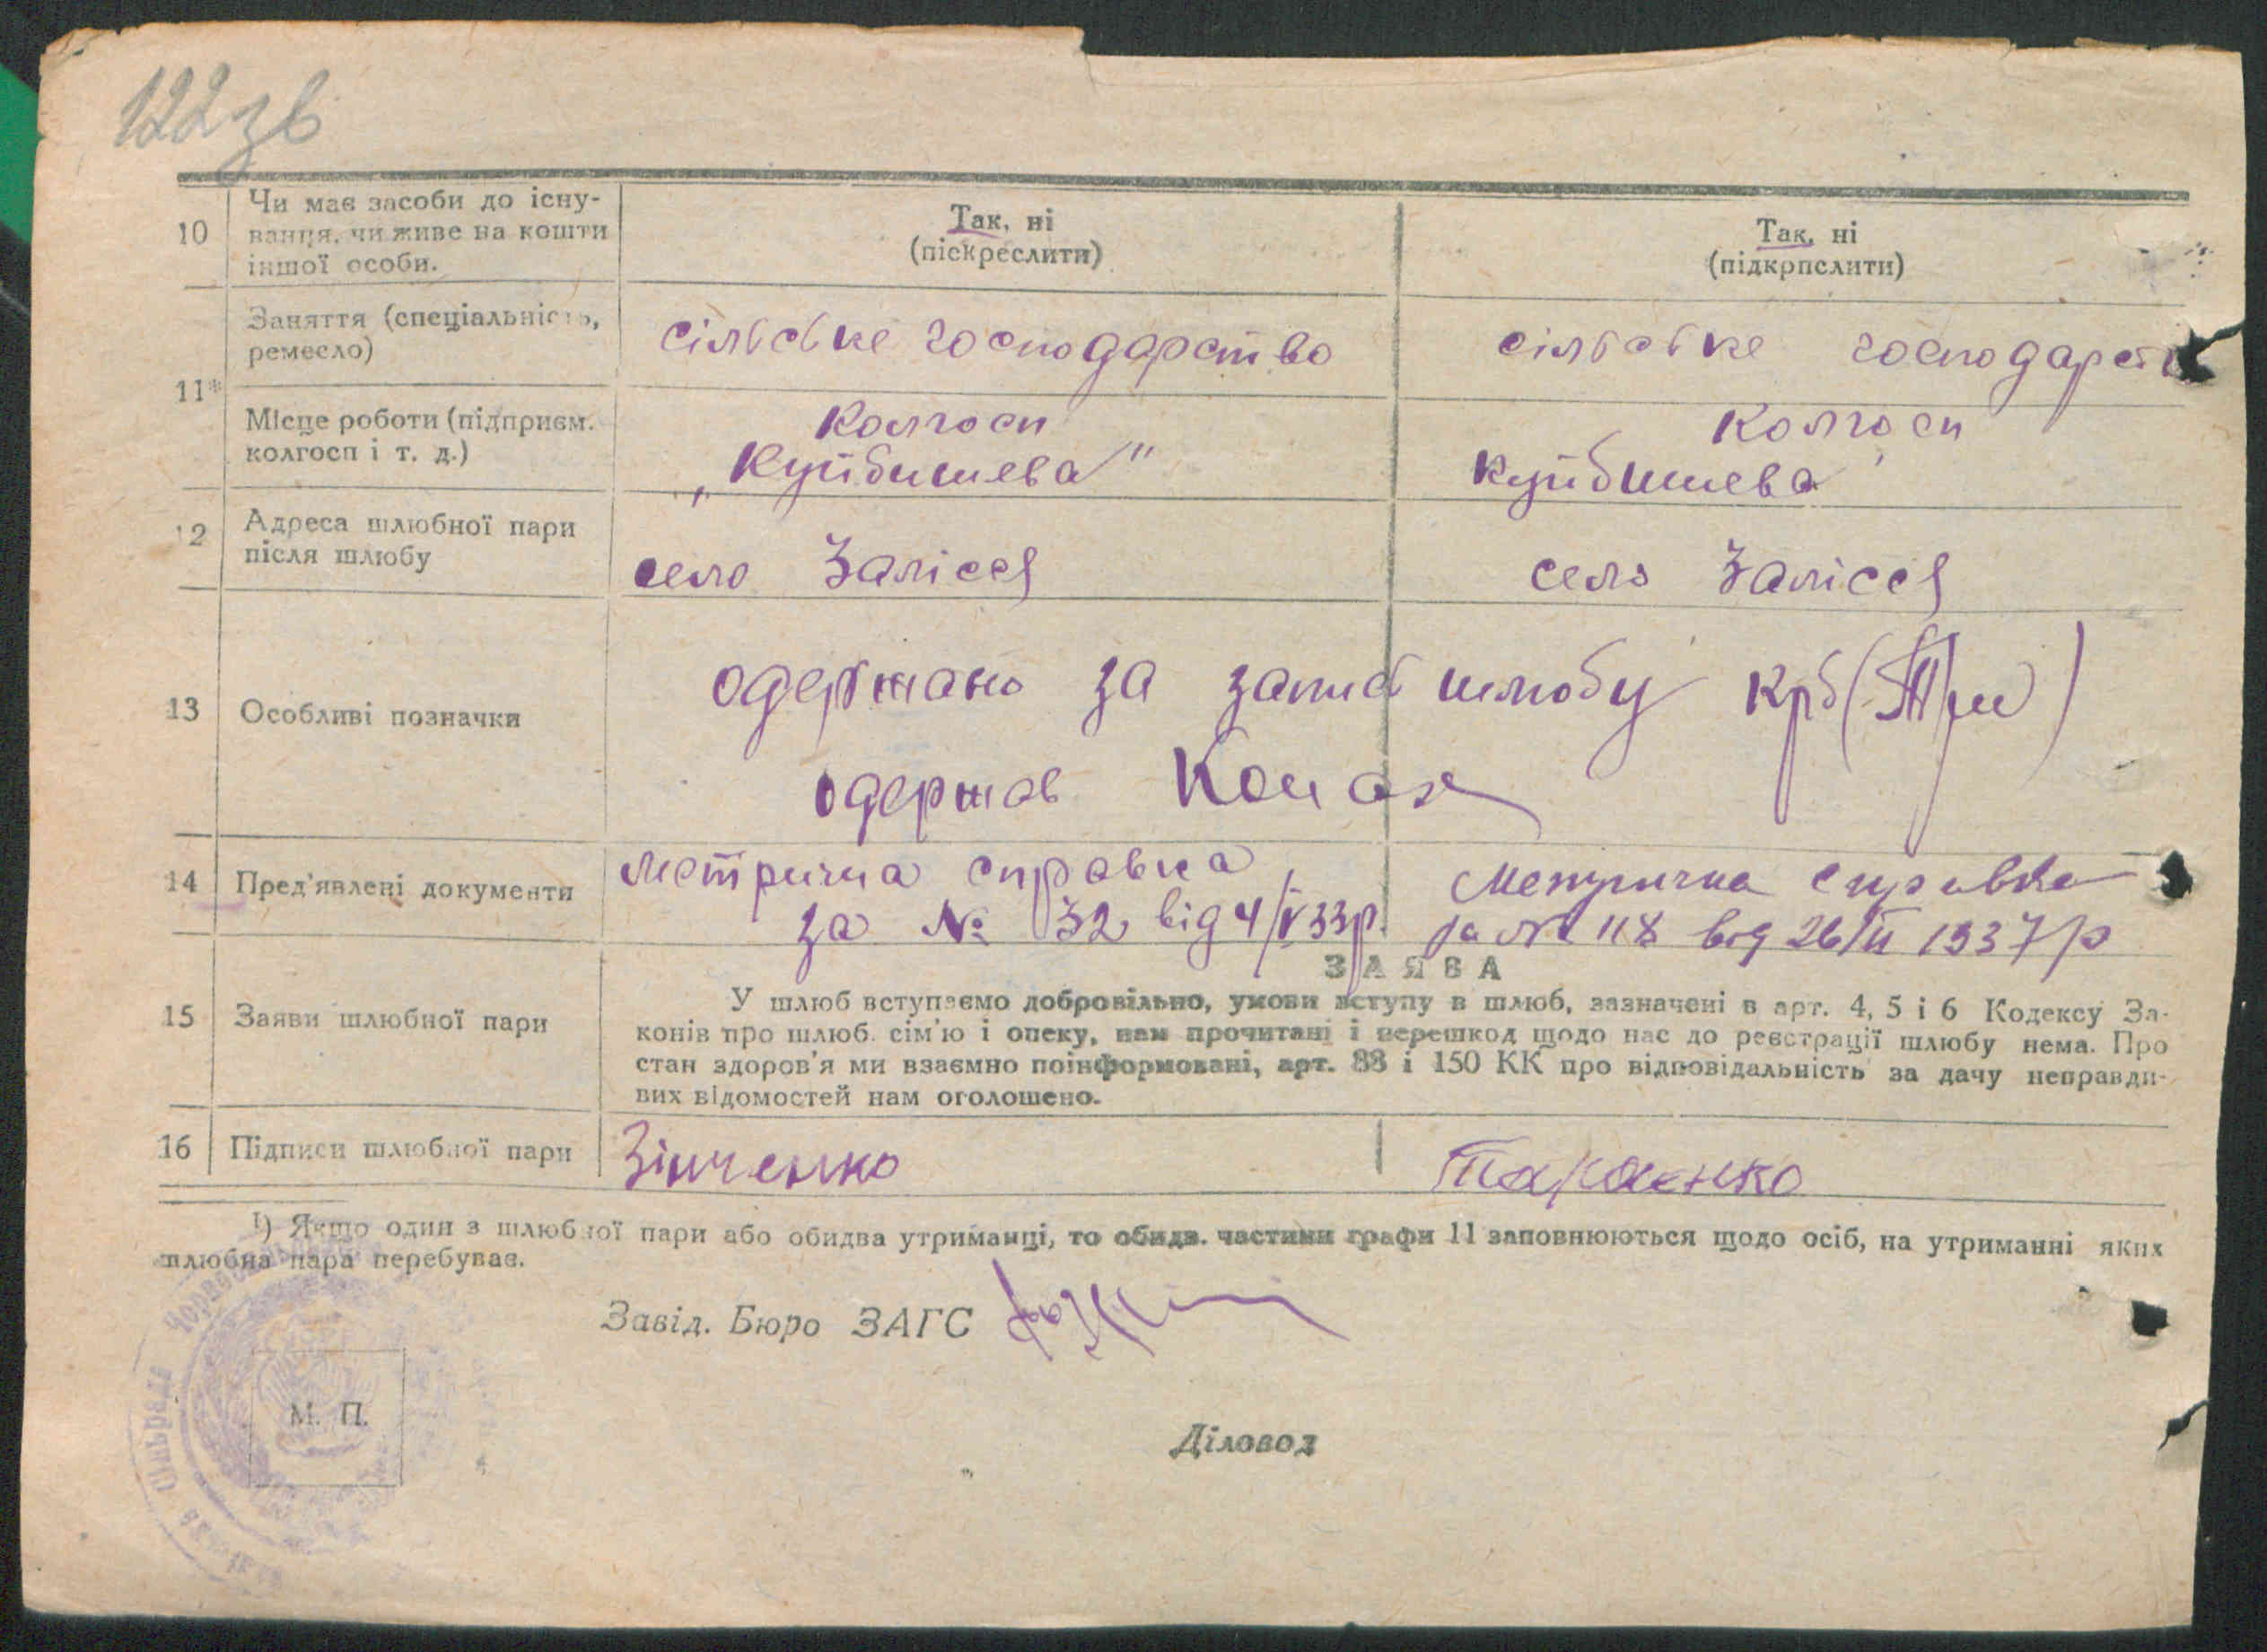 122зв
10 Чи має засоби до існу-
вання, чи живе на кошти
іншої особи.
Так, ні
(піскреслити)
Так, ні
(підкрпслити)
11*
Заняття (спеціальність,
ремесло)
сільське господарство
сільське господарств
Місце роботи (підприєм.
колгосп і т. д.)
Колгосп
„Куйбишева"
Колгосп
Куйбишева
12 Адреса шлюбної пари
після шлюбу
село Залісся
село Залісся
13 Особливі позначки
одержано за запис шлюбу крб (Три)
одержав
14 Пред'явлені документи
Метрична справка
за № 32 від 4/V 33р.
Метрична справка
за № 118 від 26/II 1937р
15 Заяви шлюбної пари
ЗАЯВА
У шлюб вступаємо добровільно, умови вступу в шлюб, зазначені в арт. 4, 5 і 6 Кодексу За-
конів про шлюб. сім'ю і опеку, нам прочитані і перешкод щодо нас до реєстрації шлюбу нема. Про
стан здоров'я ми взаємно поінформовані, арт. 88 і 150 КК про відповідальність за дачу неправди-
вих відомостей нам оголошено.
16 Підписи шлюбної пари
Зінченко
1) Якщо один з шлюбної пари або обидва утриманці, то обидв. частини графи 11 заповнюються щодо осіб, на утриманні яких
шлюбна пара перебуває.
Завід. Бюро ЗАГС
М. П.
Діловод